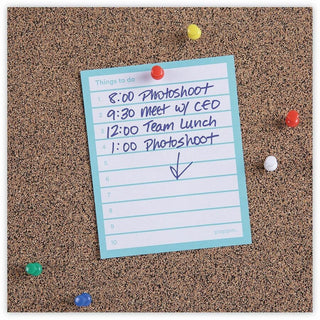 Things to do
1 8:00 Photoshoot
2 9:30 meet w/ CEO
3 12:00 Team Lunch
4 1:00 Photoshoot
5
6
7
8
9
10 poppin.